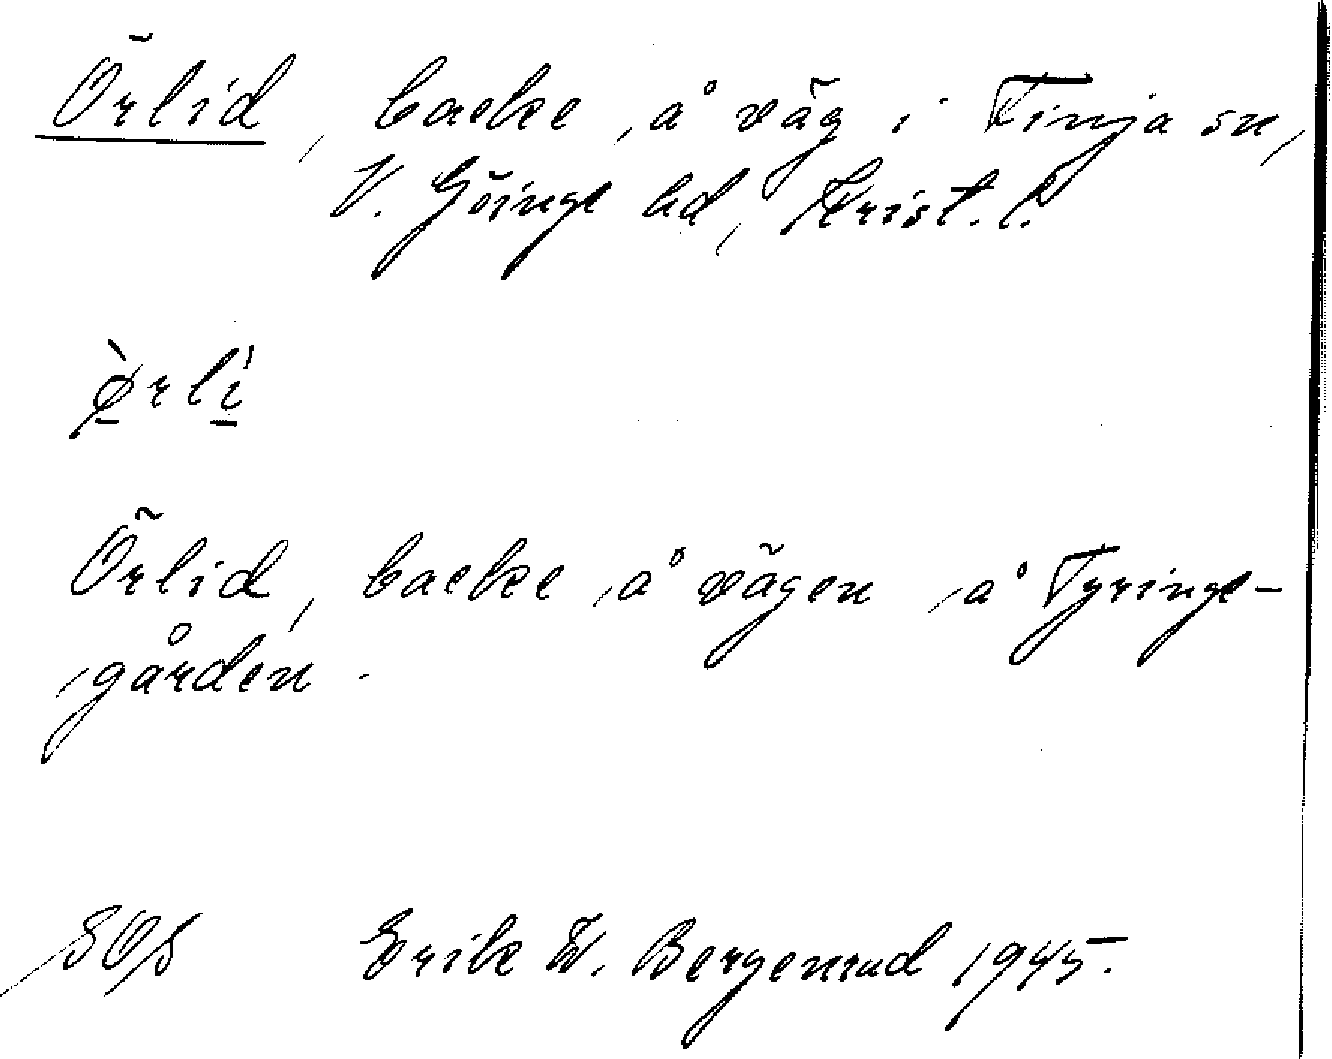 Örlid, backe å väg i Finja sn,
V. Göinge hd, Krist. l.
ø̀rlì
Örlid, backe å vägen å Tyringe-
gården.
SOS Erik W. Bergenrud 1945.